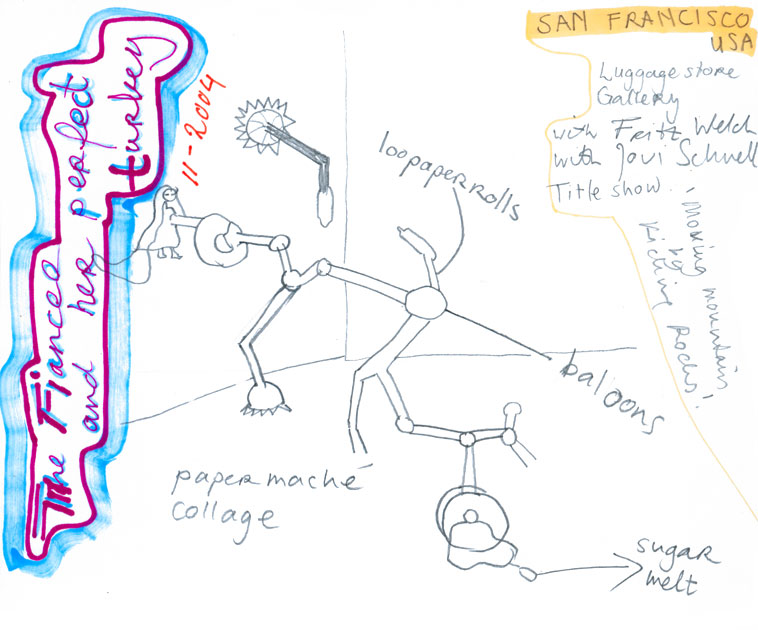 The Fiancee
and her perfect
turkey
11-2004
SAN FRANCISCO
USA
Luggage store
Gallery
with Fritz Welch
with Jovi Schnell
Title show
"Moving mountains
by
Kicking Rocks!
loopaperrolls
baloons
paper maché
collage
sugar
melt